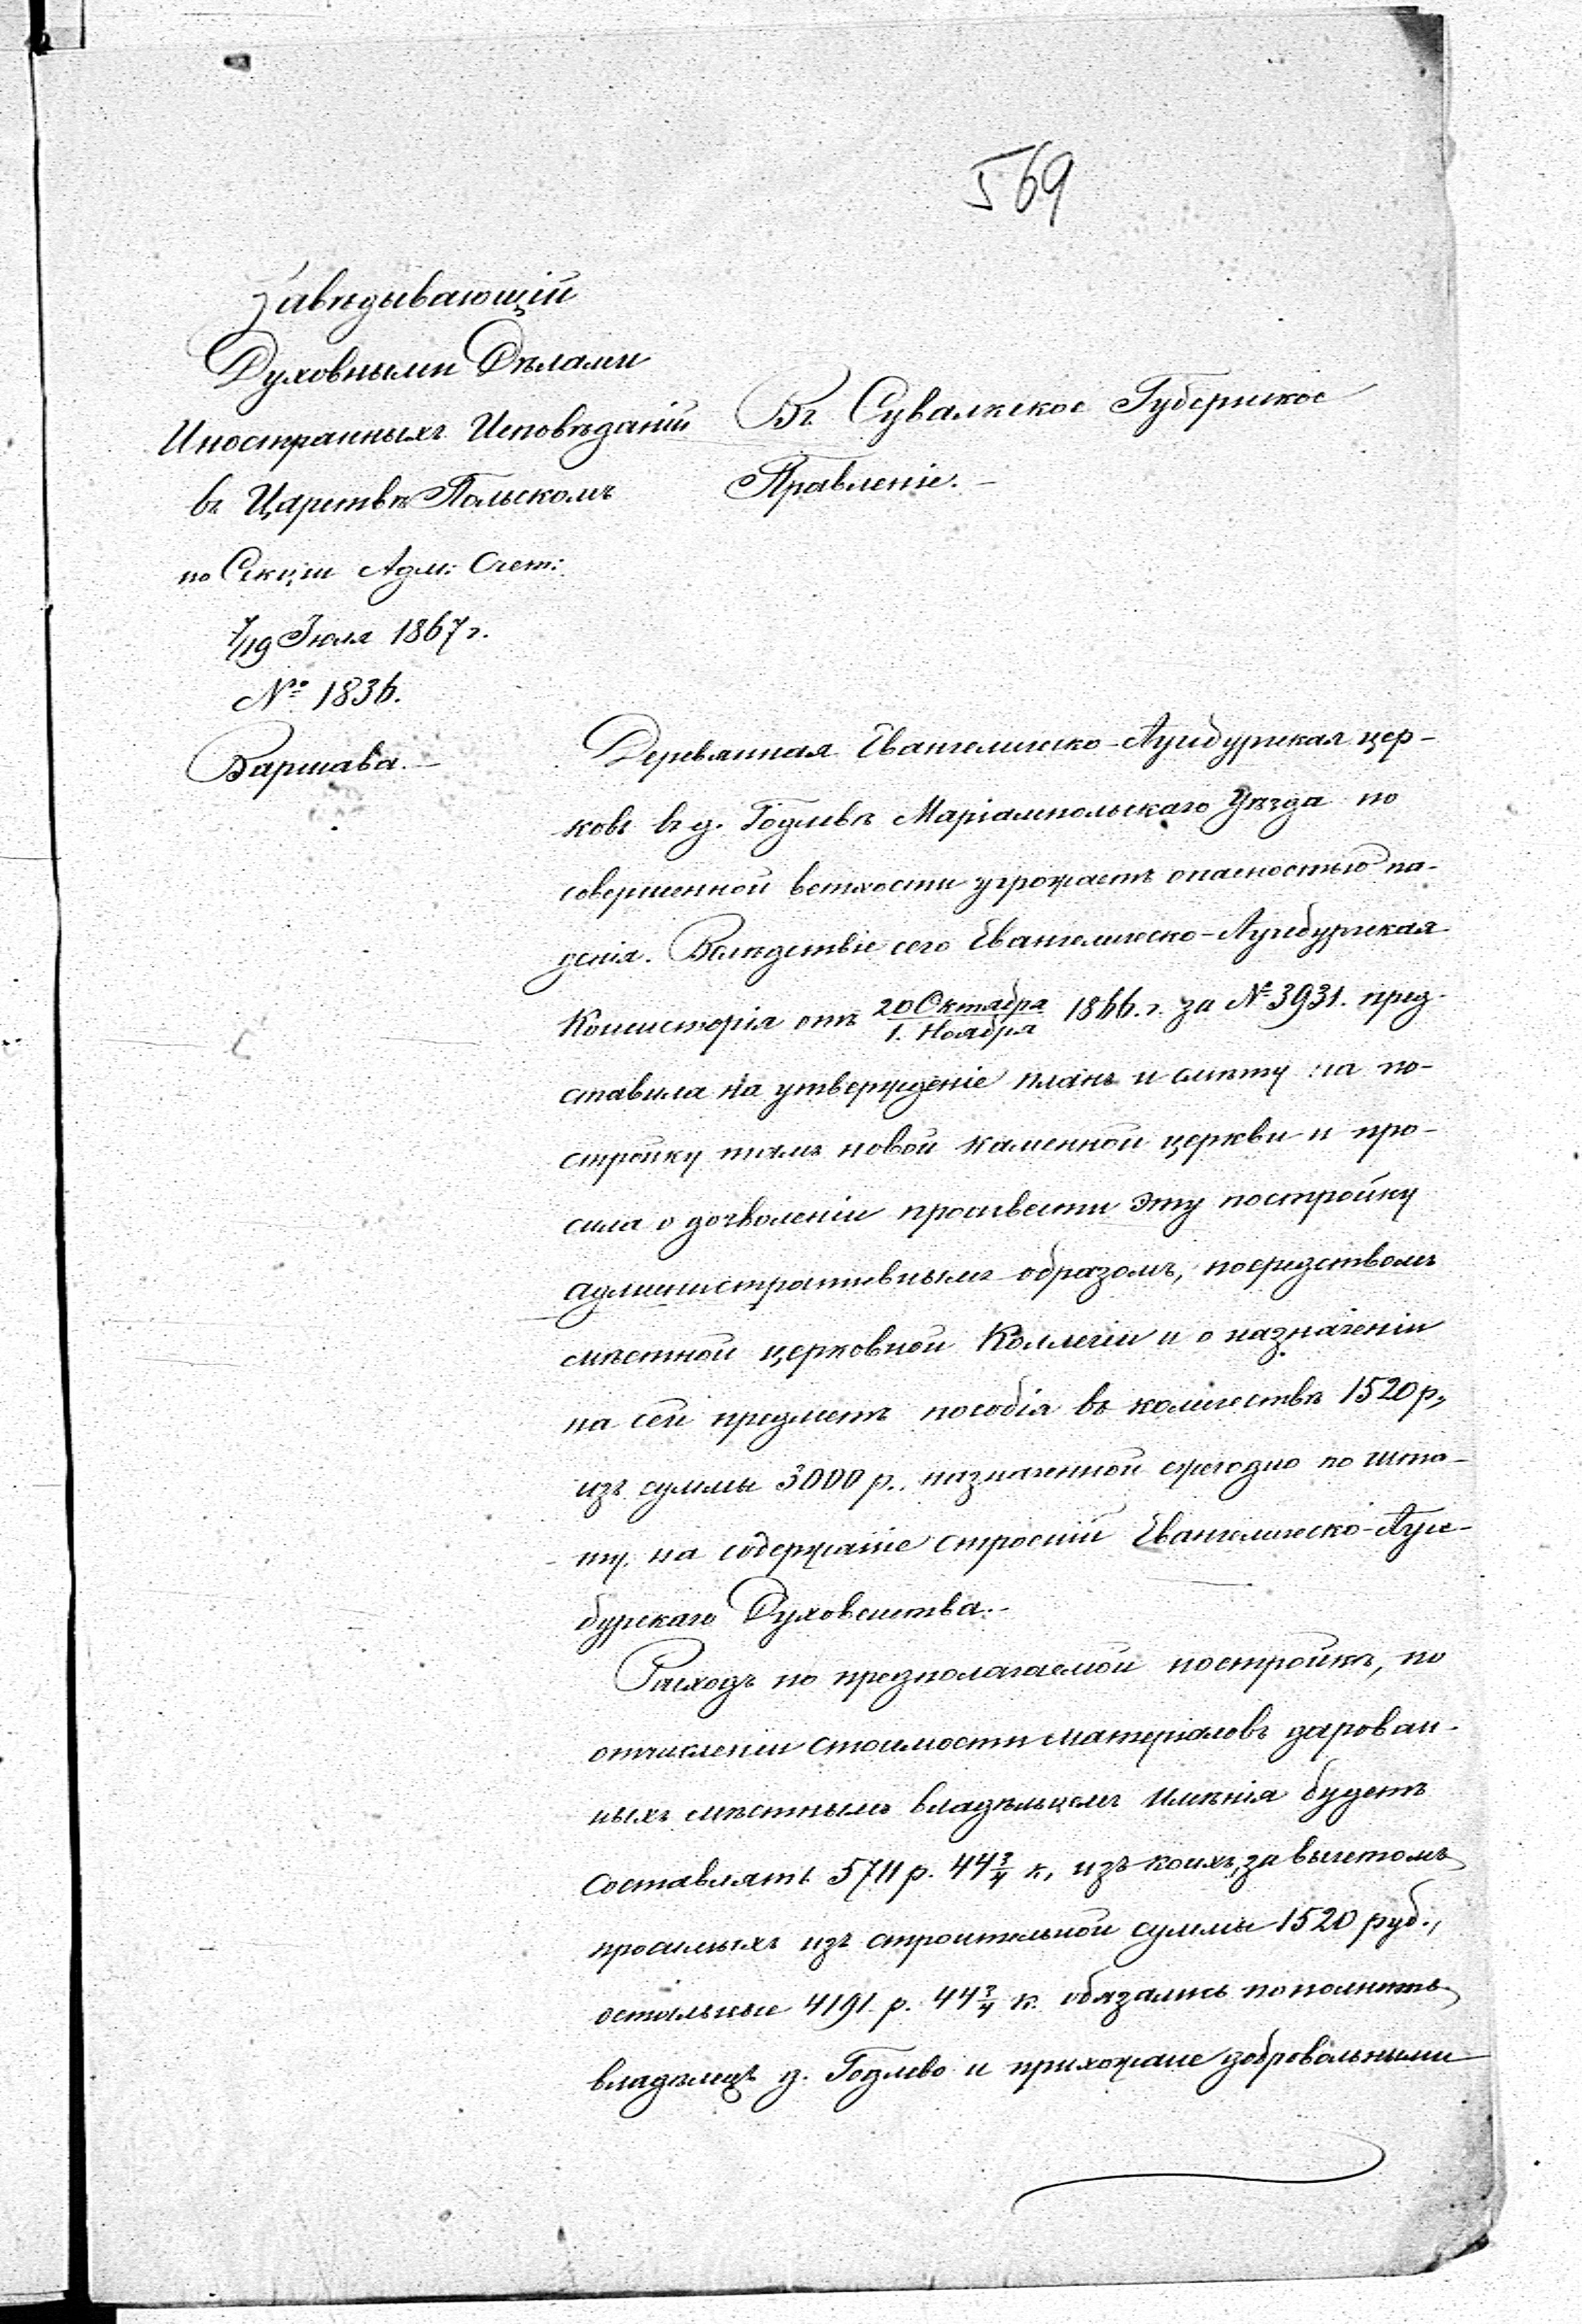 569
Завѣдывающій
Духовными Дѣлами
Иностранныхъ Исповѣданій
въ Царствѣ Польскомъ
по Секціи Адм: Счет:
7/19 Іюля 1867 г.
№ 1836.
Варшава.—
Въ Сувалкское Губернское
Правленіе.—
Деревянная Евангелическо-Аугсбургская цер-
ковь въ д. Годлевѣ Маріампольскаго Уѣзда по
совершенной ветхости угрожаетъ опасностью па-
денія. Вслѣдствіе сего Евангелическо-Аугсбургская
Консисторія отъ 20 Октября/1. Ноября 1866. г. за № 3931. пред-
ставила на утвержденіе планъ и смѣту на по-
стройку тамъ новой каменной церкви и про-
сила о дозволеніи произвести эту постройку
административнымъ образомъ, посредствомъ
мѣстной церковной Коллегіи и о назначеніи
на сей предметъ пособія въ количествѣ 1520 р.,
изъ суммы 3000 р., назначенной ежегодно по шта-
ту, на содержаніе строеній Евангелическо-Аугс-
бургскаго Духовенства.—
Расходъ по предполагаемой постройкѣ, по
отчисленіи стоимости матеріаловъ дарован-
ныхъ мѣстнымъ владѣльцемъ имѣнія будетъ
составлять 5711 р. 44 3/4 к., изъ коихъ, за вычетомъ
просимыхъ изъ строительной суммы 1520 руб.,
остальные 4191. р. 44 3/4 к. обязались пополнить
владѣлецъ д. Годлево и прихожане добровольными